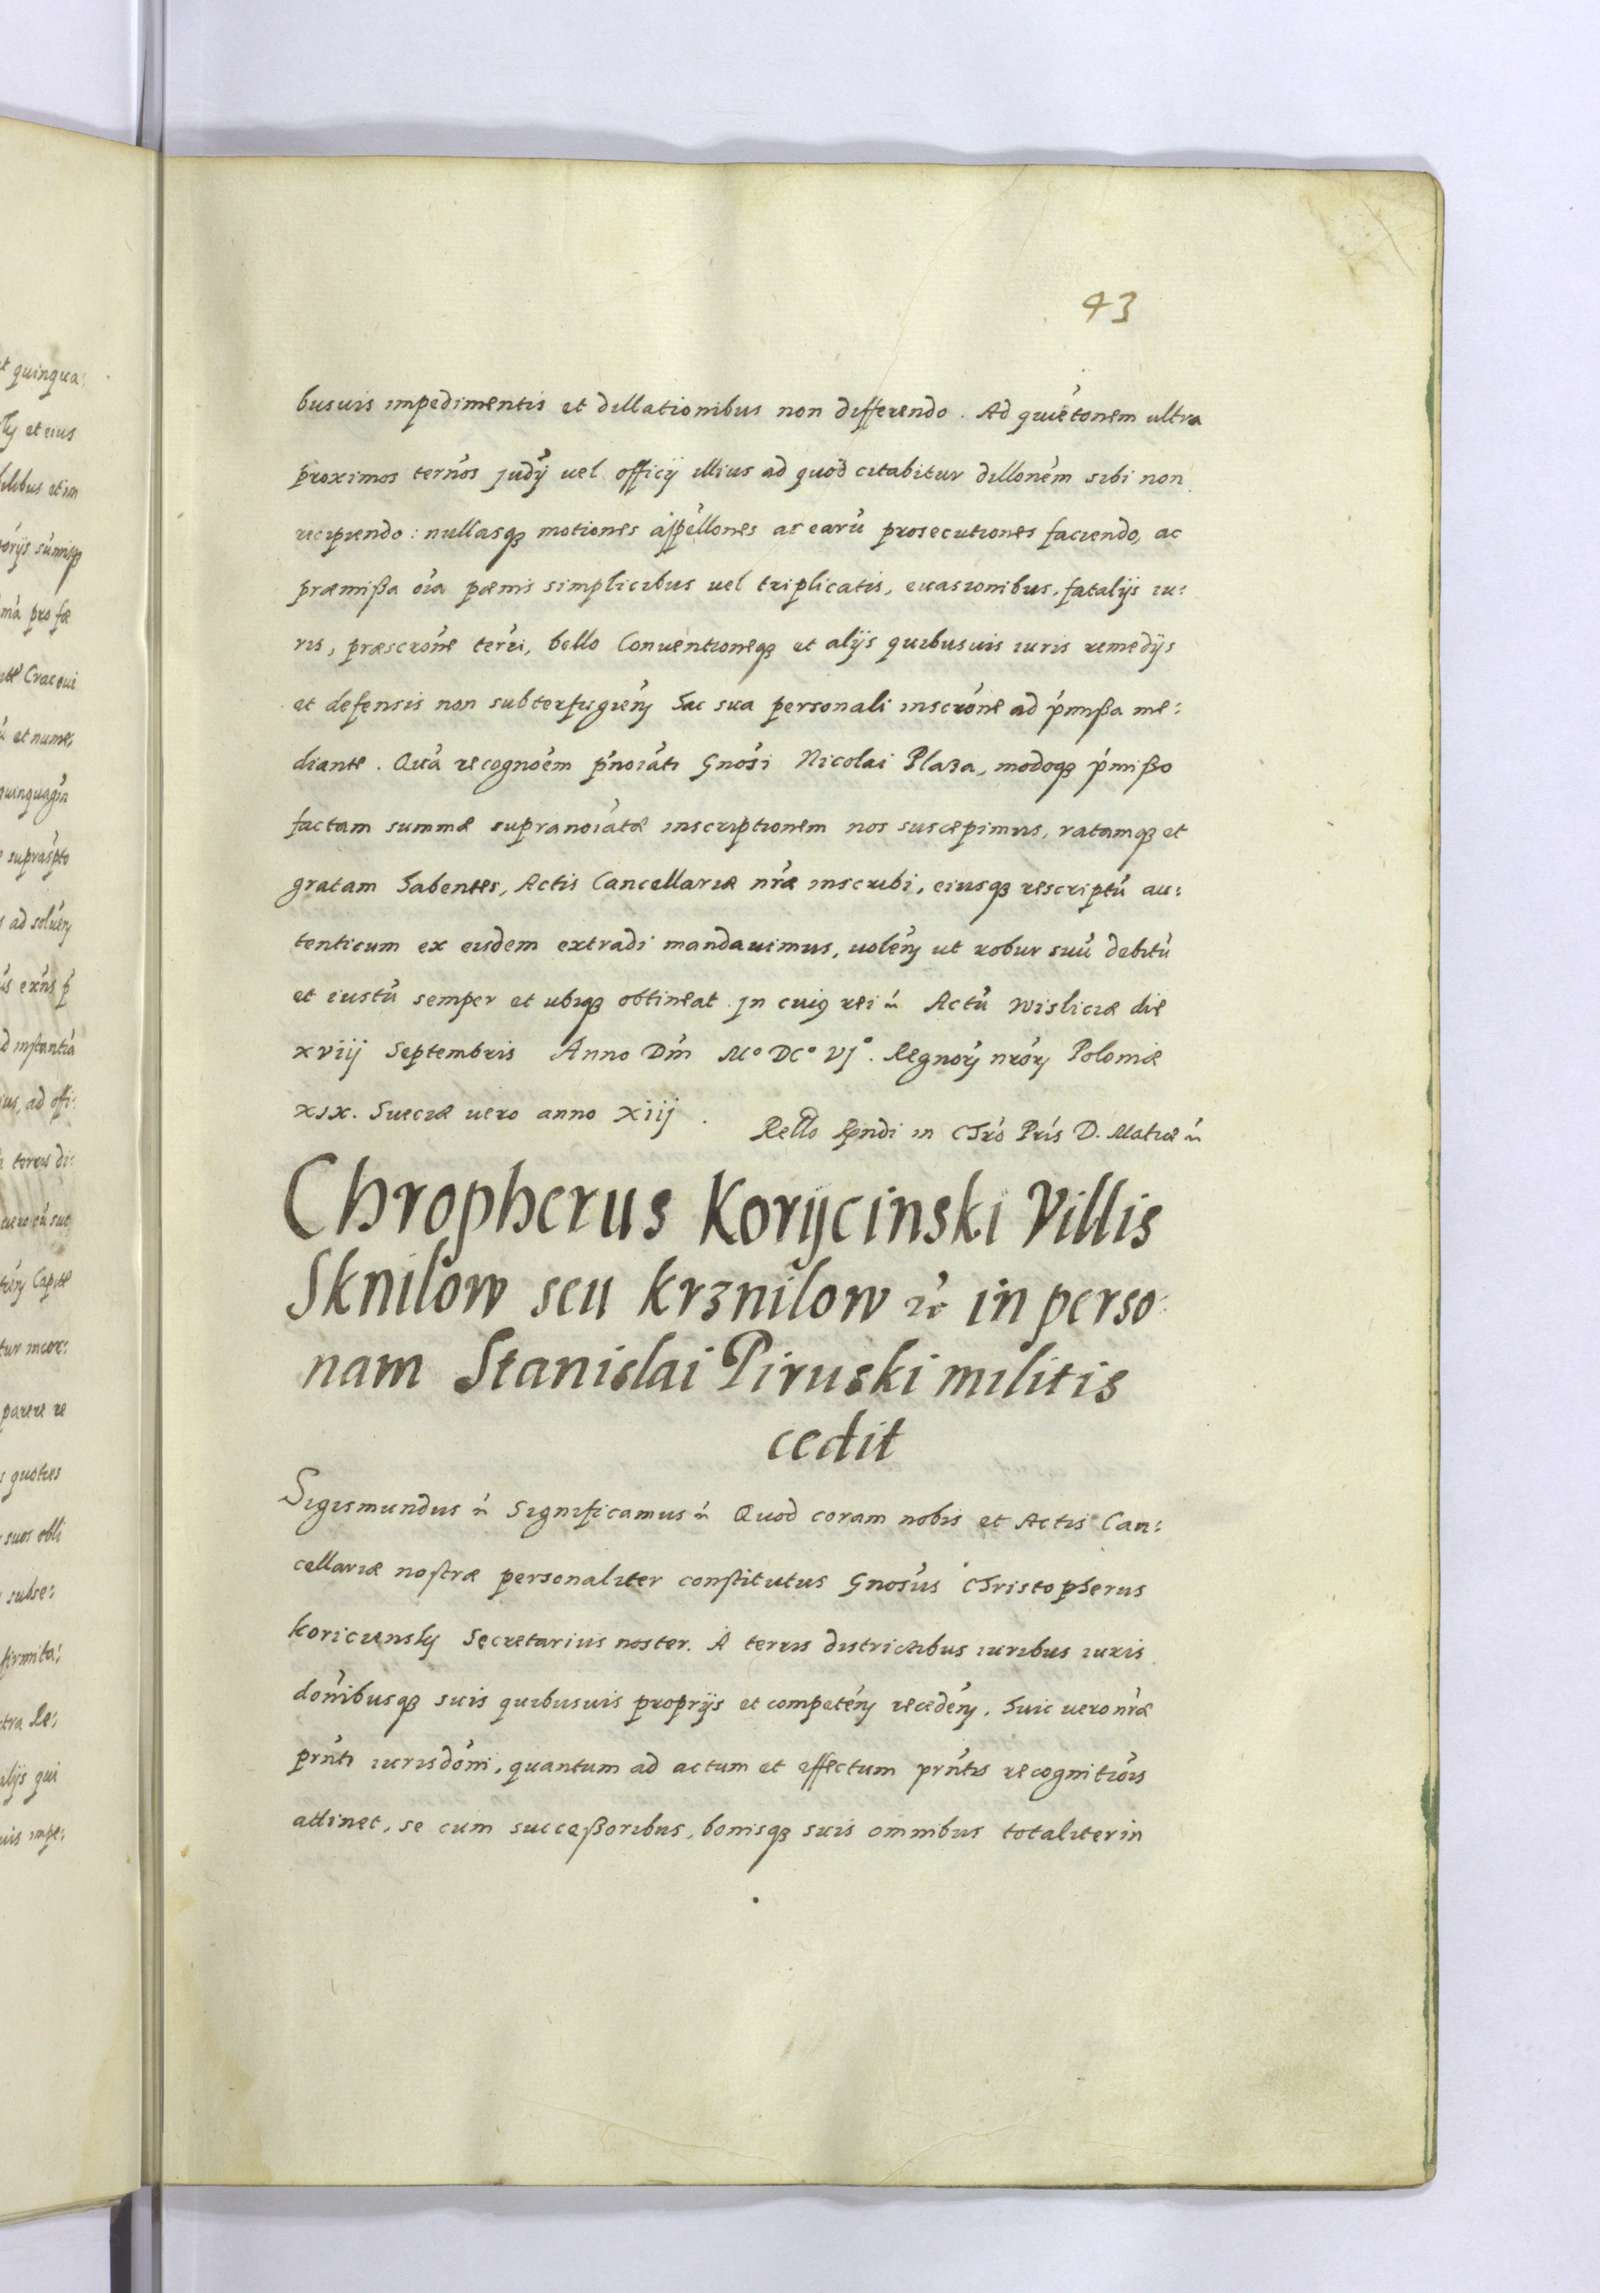 43
busuis impedimentis et dillationibus non differendo. Ad quietonem ultra
proximos ternos judij uel officij illius ad quod citabitur dillonem sibi non
recipiendo: nullasq motiones appellones ac earu prosecutiones faciendo, ac
præmißa oia pænis simplicibus uel triplicatis, euasionibus, fatalijs iu:
ris, præscrone terri, bello Conuentioneq et alijs quibusuis iuris remedijs
et defensis non subterfugien hac sua personali inscrone ad pmißa me:
diante. Qua recognoem pnoiati Gnosi Nicolai Plaza, modoq pmißo
factam summæ supranoiatæ inscriptionem nos suscepimus, ratamq et
gratam habentes, Actis Cancellariæ nræ inscribi, eiusq rescriptu au:
tenticum ex eisdem extradi mandauimus, uolen ut robur suu debitu
et iustu semper et ubiq obtineat. Jn cuiq rei Actu Wisliciæ die
xviij Septembris Anno Dm Mo DCo VJo. Regnor nror Poloniæ
xix. Sueciæ uero anno xiij.
Rello Rndi in Chro Pris D. Matiæ
Chropherus Korijcinski Villis
Sknilow seu krznilow etc in perso:
nam Stanislai Piruski militis
cedit
Sigismundus Significamus Quod coram nobis et Actis Can:
cellariæ nostræ personaliter constitutus Gnosus Christopherus
koriciensky Secretarius noster. A terris districtibus iuribus iuris
donibusq suis quibusuis proprijs et competen receden, huic uero nræ
prnti iurisdoni, quantum ad actum et effectum prntis recognitiois
attinet, se cum succeßoribus, bonisq suis omnibus totaliter in
t quinqua:
ty et eius
orijs sumisq
ma pro fæ
Cracoui
et nume:
quinquagin
suprasPto
ad soluen
d instantia
ius, ad offi:
Capitæ
parere re
s quoties
suos obli
subse:
firmita:
alijs qui
uis impe: